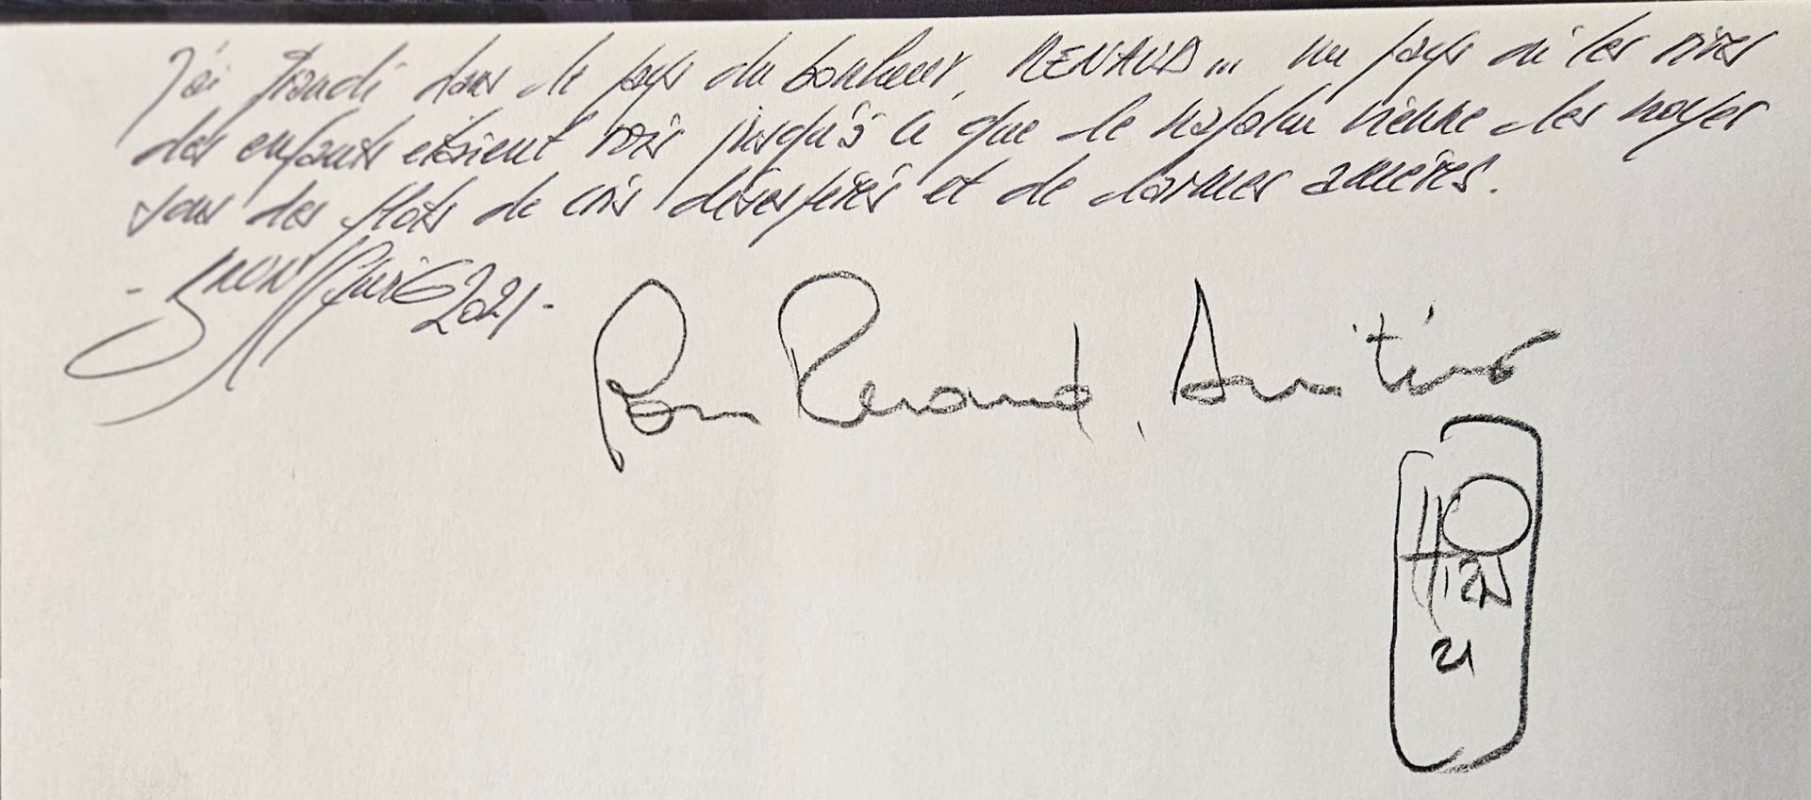 J'ai grandi dans le pays du bonheur, RENAUD... un pays où les rires
des enfants étaient rois jusqu'à ce que le napalm vienne les noyer
sous des flots de cris désespérés et de larmes amères.
2021 -
Pour Renaud, Amitiés
21